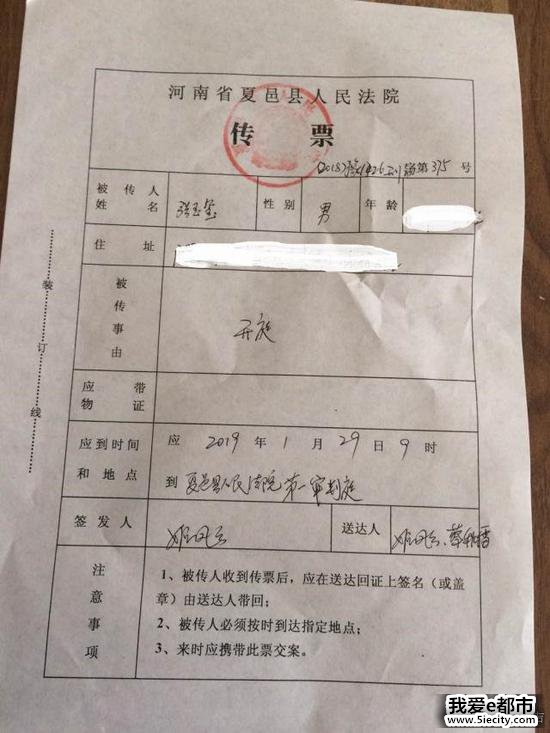 河南省夏邑县人民法院
传 票
(2018)豫1426 初 第375号
被传人姓名 张玉玺 性别 男 年龄
住 址
被传事由 开庭
应带物证
应到时间和地点
应 2019 年 1 月 29 日 9 时
到 夏邑县人民法院第一审判庭
签发人 送达人
注意事项
1、被传人收到传票后，应在送达回证上签名（或盖
章）由送达人带回；
2、被传人必须按时到达指定地点；
3、来时应携带此票交案。
装 订 线
我爱e都市
www.5iecity.com